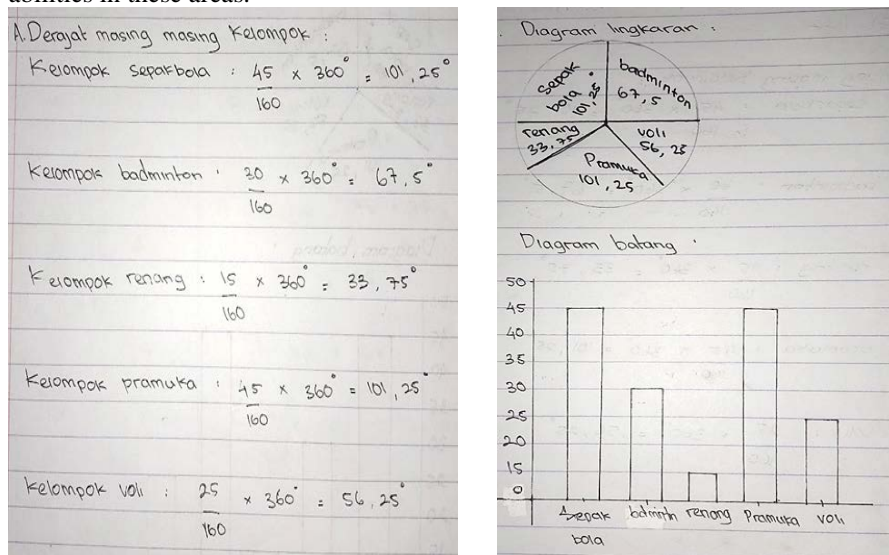 abilities in these areas.
A. Derajat masing masing Kelompok :
Kelompok sepakbola : 45 x 360° = 101, 25°
160
Kelompok badminton : 30 x 360° = 67, 5°
160
Kelompok renang : 15 x 360° = 33, 75°
160
Kelompok pramuka : 45 x 360° = 101, 25°
160
Kelompok voli : 25 x 360° = 56, 25°
160
. Diagram lingkaran :
Sepak
bola
101,25°
badminton
67, 5
renang
33, 75
voli
56, 25
Pramuka
101, 25
Diagram batang :
50
45
40
35
30
25
20
15
0
Sepak
bola
badmintn
renang
Pramuka
voli